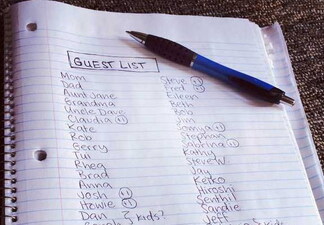 GUEST LIST
Mom
Dad
Aunt Jane
Grandma
Uncle Dave
Claudia +1
Kate
Rob
Gerry
Tui
Rhea
Brad
Anna
Josh +1
Howie +1
Dan 3 kids?
Steve +1
Fred +1
Eileen
Beth
Bob
Sonya +1
Stephan
Sabrina +1
Kathy
Steve W
Jay
Keiko
Hiroshi
Senthil
Jeff